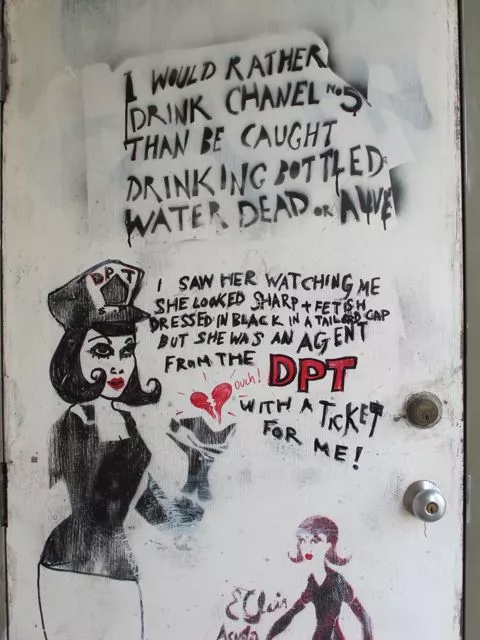 I WOULD RATHER
DRINK CHANEL No5
THAN BE CAUGHT
DRINKING BOTTLED
WATER DEAD OR ALIVE
DPT
I SAW HER WATCHING ME
SHE LOOKED SHARP + FETISH
DRESSED IN BLACK IN A TAILORED CAP
BUT SHE WAS AN AGENT
FROM THE DPT
ouch!
WITH A TICKET
FOR ME!